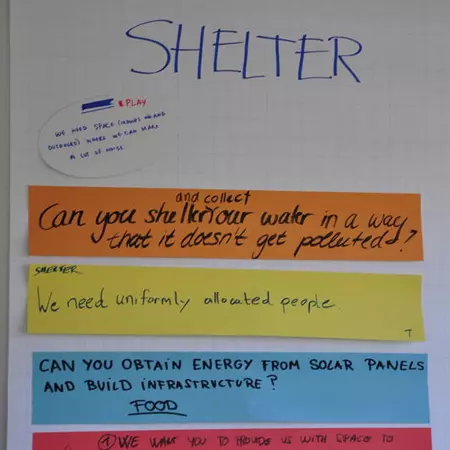 SHELTER
& PLAY
WE NEED SPACE (INDOORS AND
OUTDOORS) WHERE WE CAN MAKE
A LOT OF NOISE
and collect
Can you shelter your water in a way
that it doesn't get polluted?
SHELTER
We need uniformly allocated people.
T
CAN YOU OBTAIN ENERGY FROM SOLAR PANELS
AND BUILD INFRASTRUCTURE?
FOOD
1 WE WANT YOU TO PROVIDE US WITH SPACE TO